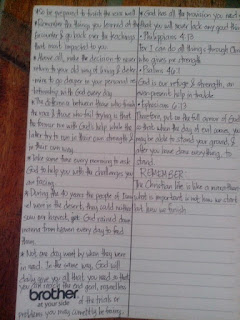 * Be prepared to finish the race well
* Remember the things you learned at the
Encounter & go back over the teachings
that most impacted you
* Above all, make the decision to never
return to your old way of living & determine
to go deeper in your personal
relationship with God every day
* The difference between those who finish
the race & those who fail trying is that
the former run with God's help while the
latter try to run in their own strength &
in their own way.
* Take some time every morning to ask
God to help you with the challenges you
are facing.
* During the 40 years the people of Israel
were in the desert, they could neither
sow nor harvest, yet God rained down
manna from heaven every day to feed
them.
* Not one day went by when they were
in need. In the same way, God will
daily give you all that you need so that
you can reach the end goal, regardless
of the trials or
problems you may currently be facing.
* God has all the provision you need so
that you will never lack any good thing
* Philippians 4:13
For I can do all things through Christ
who gives me strength
* Psalms 46:1
God is our refuge & strength, an
ever-present help in trouble
* Ephesians 6:13
Therefore, put on the full armour of God
so that when the day of evil comes, you
may be able to stand your ground, &
after you have done everything, to
stand.
REMEMBER:
The Christian life is like a marathon
what is important is not how we start
but how we finish
brother
at your side